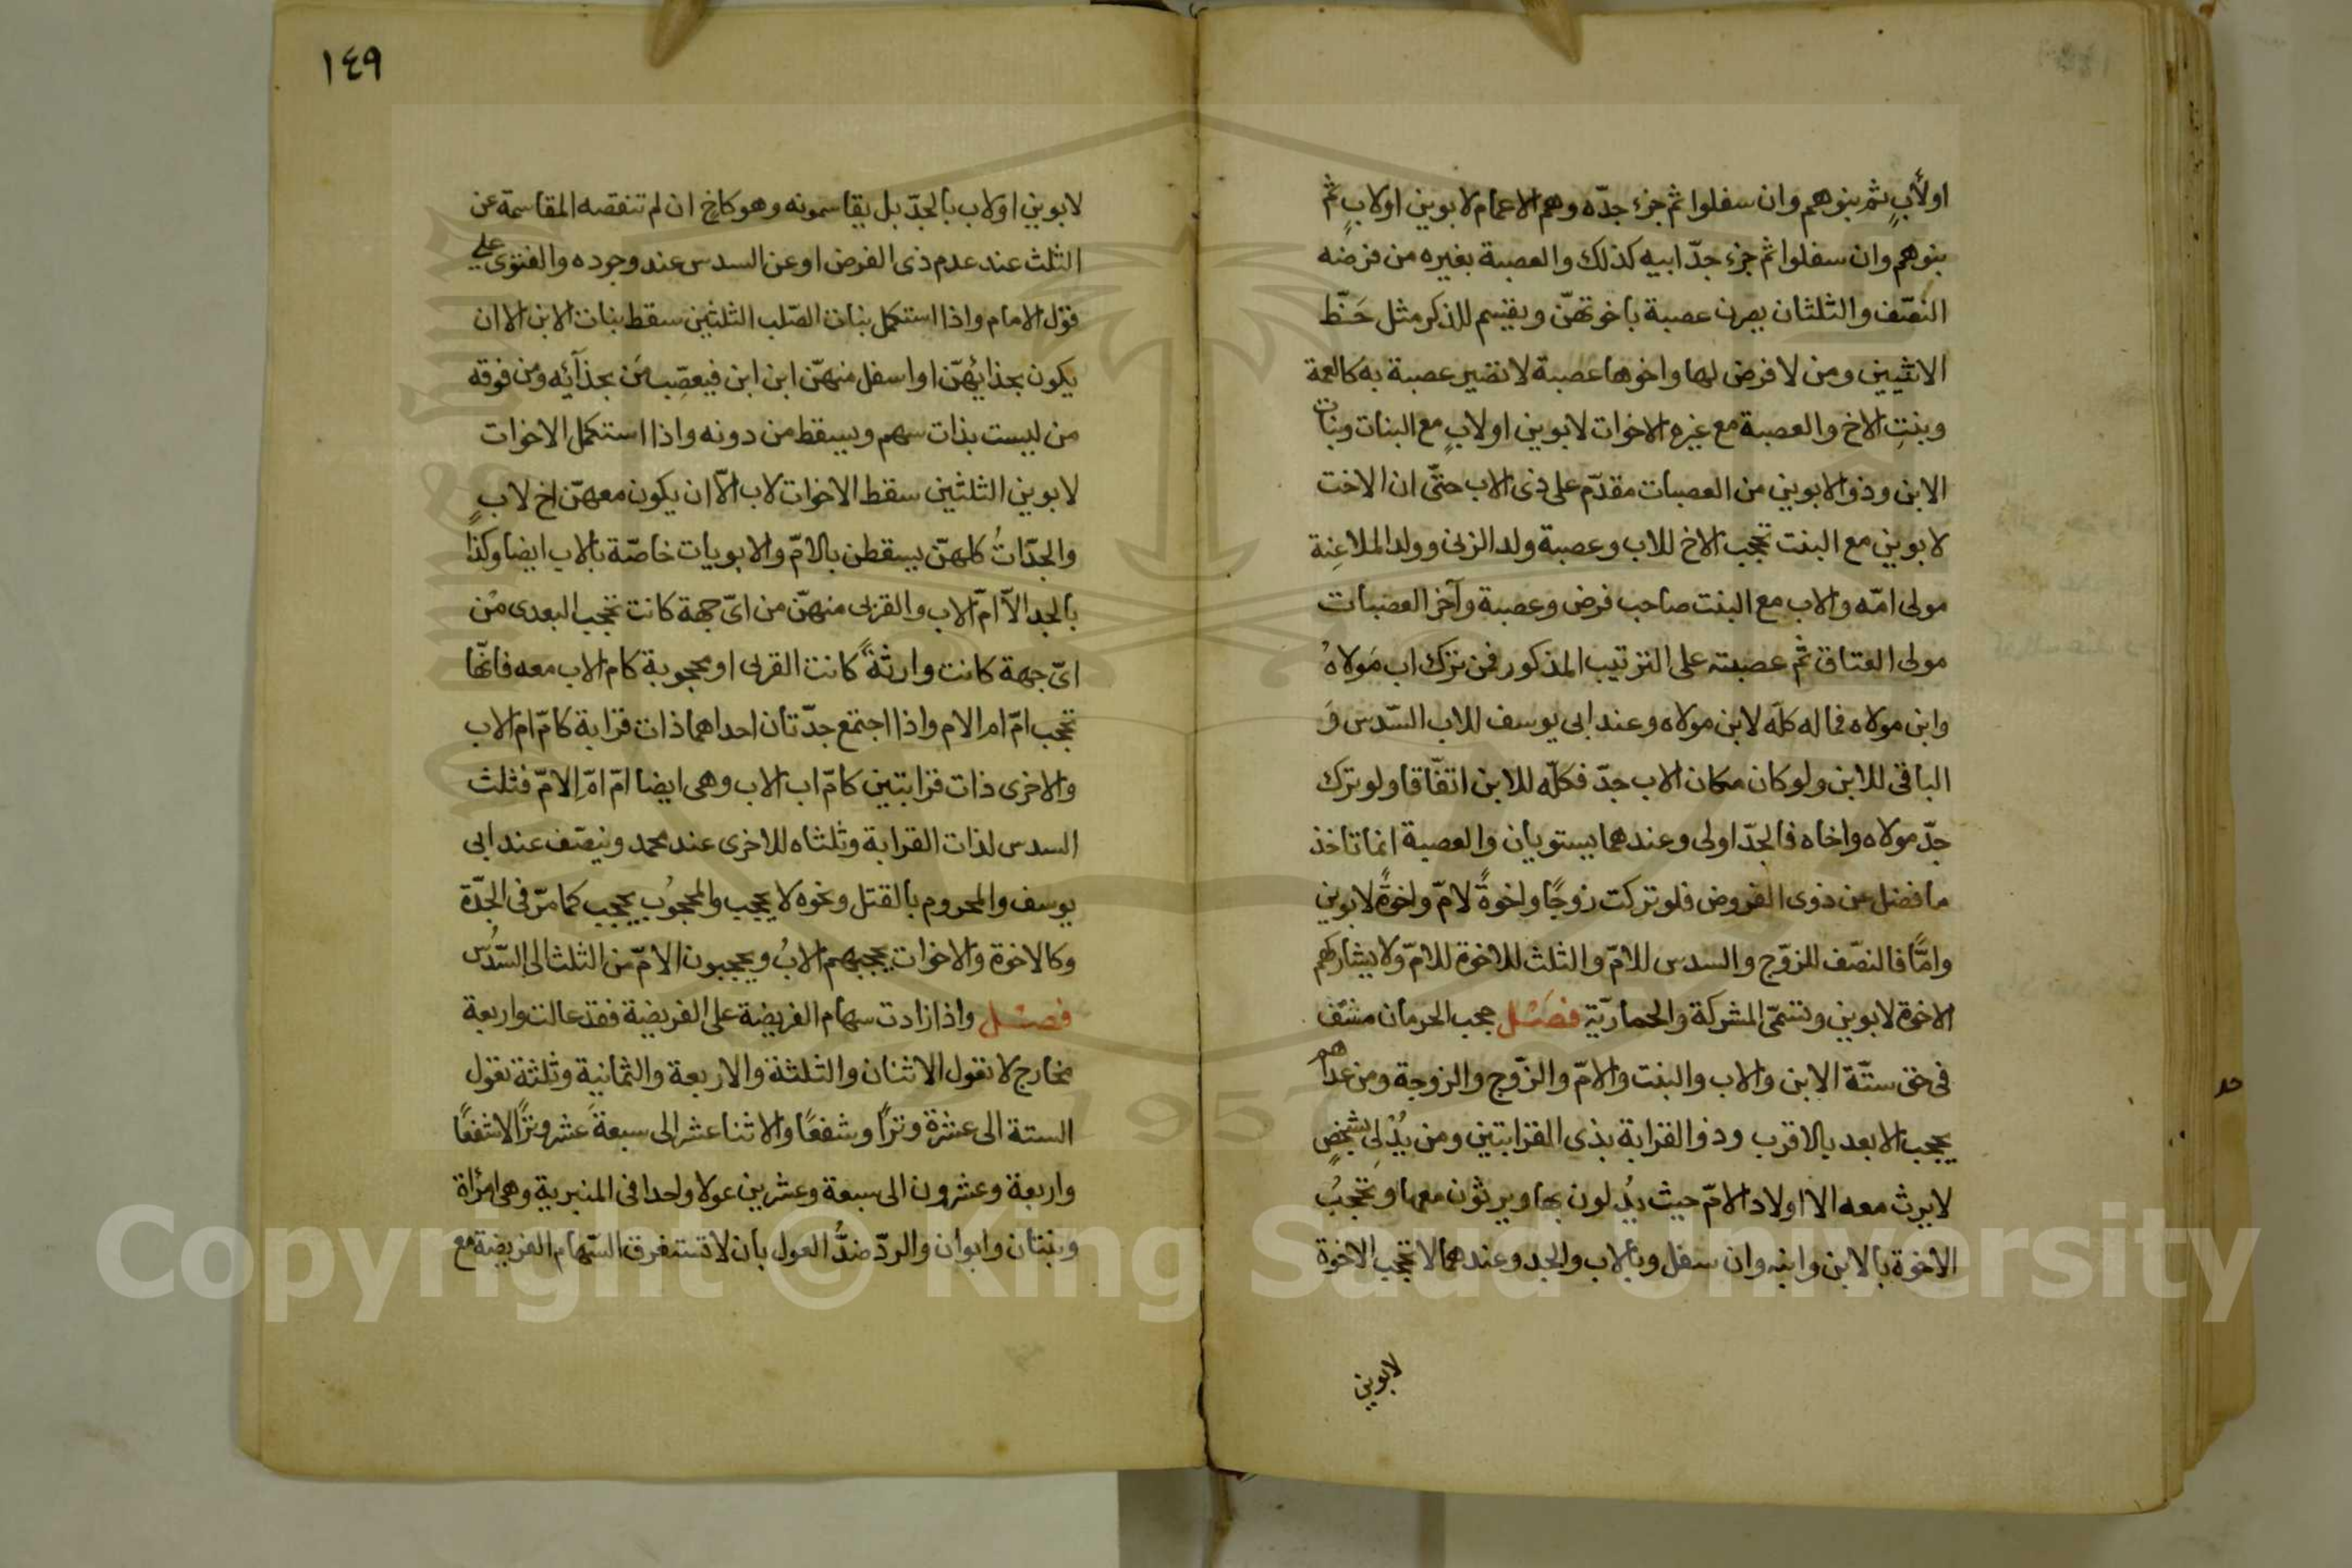 اولأبٍ ثم بنوهم وان سفلوا ثم جزء جدّه وهم الاعمام لابوين اولابٍ ثم
بنوهم وان سفلوا ثم جزء جدّ ابيه كذلك والعصبة بغيره من فرضه
النصّف والثلثان يصرن عصبة باخوتهنّ ويقسم للذكر مثل حَظّ
الانثيين ومن لا فرض لها واخوها عصبة لا تصير عصبة به كالعمة
وبنتِ الاخ والعصبة مع غيره الاخوات لابوين اولابٍ مع البنات وبنات
الابن وذو الابوين من العصبات مقدّم على ذى الاب حتّى ان الاخت
لابوين مع البنت تحجب الاخ للاب وعصبة ولد الزنى وولد الملاعِنة
مولى امّه والاب مع البنت صاحب فرض وعصبة وآخر العصبات
مولى العتاق ثم عصبته على الترتيب المذكور فمن ترك اب مَولاهُ
وابن مولاه فماله كلّه لابن مولاه وعند ابى يوسف للاب السّدس وَ
الباقى للابن ولو كان مكان الاب جدّ فكلّه للابن اتفّاقا ولو ترك
جدّ مولاه واخاه فالجدّ اولى وعندهما يستويان والعصبة انما تاخذ
ما فضل عن ذوى الفروض فلو تركت زوجًا واخوةً لامّ واخوةً لابوين
وامًّا فالنصّف للزوّج والسدس للامّ والثلث للاخوة للامّ ولا يشاركهم
الاخوة لابوين وتسمّى المشركة والحماريّة فصَْل حجب الحرمان منتف
فى حق ستّة الابن والاب والبنت والامّ والزّوج والزوجة ومن عداهم
يحجب الابعد بالاقرب وذو القرابة بذى القرابتين ومن يُدْلِى بشخصٍ
لا يرث معه الا اولاد الامّ حيث يُدلون بها ويرثون معها وتحجبُ
الاخوة بالابن وابنه وان سفل وبالاب والجد وعندهما لا تحجب الاخوة
لابوين
١٤٩
لابوين اولاب بالجدّ بل يقاسمونه وهو كاخٍ ان لم تنقصه المقاسمة عن
الثلث عند عدم ذى الفرض او عن السدس عند وجوده والفتوى على
قول الامام واذا استكمل بنات الصّلب الثلثين سقط بنات الابن الا ان
يكون بحذائهنّ او اسفل منهنّ ابن ابن فيعصِّب مَن بحذآئه ومن فوقه
من ليست بذات سهم ويسقط من دونه واذا استكمل الاخوات
لابوين الثلثين سقط الاخوات لاب الاّ ان يكون معهنّ اخ لابٍ
والجدّاتُ كلهنّ يسقطن بالامّ والابويات خاصّة بالاب ايضا وكذا
بالجد الاّ امّ الاب والقربى منهنّ من اىّ جهة كانت تحجب البعدى من
اىّ جهة كانت وارثةً كانت القربى او محجوبة كام الاب معه فانهّا
تحجب امّ ام الام واذا اجتمع جدّتان احداهما ذات قرابة كامّ ام الاب
والاخرى ذات قرابتين كامّ اب الاب وهى ايضا امّ امّ الامّ فثلث
السدس لذات القرابة وثلثاه للاخرى عند محمد وينصّف عند ابى
يوسف والمحروم بالقتل ونحوه لا يحجب والمحجوُب يحجب كما مرّ فى الجّدّة
وكالاخوة والاخوات يحجبهم الابُ ويحجبون الامّ من الثلث الى السّدُس
فصَْل واذا زادت سهام الفريضة على الفريضة فقد عالت واربعة
مخارج لا تعول الاثنان والثلثة والاربعة والثمانية وثلثة تعول
الستة الى عشرة وترًا وشفعًا والاثنا عشر الى سبعةَ عشر وترًا لا شفعًا
واربعة وعشرون الى سبعة وعشرين عولا واحدا فى المنبرية وهى امرأة
وبنتان وابوان والردّ ضدُّ العول بان لا تستغرق السّهام الفريضة مع
Copyright © King Saud University
1957